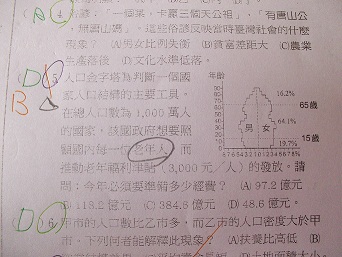 A 4. 俗諺:「一個某,卡贏三個天公祖」、「有唐山公
,無唐山媽」,這些俗諺反映當時臺灣社會的什麼
現象? (A)男女比例失衡 (B)貧富差距大 (C)農業
生產落後 (D)文化水準低落。
D 5. 人口金字塔為判斷一個國
B 家人口結構的主要工具。
在總人口數為 1,000 萬人
的國家,該國政府想要照
顧國內每一位老年人,而
推動老年福利津貼(3,000 元/人)的發放。請
問:今年必須要準備多少經費? (A) 97.2 億元
(B) 118.2 億元 (C) 384.6 億元 (D) 48.6 億元。
年齡
16.2%
65歲
男 女
64.1%
15歲
19.7%
8 7 6 5 4 3 2 1 0 1 2 3 4 5 6 7 8 (%)
D 6. 甲市的人口數比乙市多,而乙市的人口密度大於甲
市,下列何者能解釋此現象? (A)扶養比高低 (B)